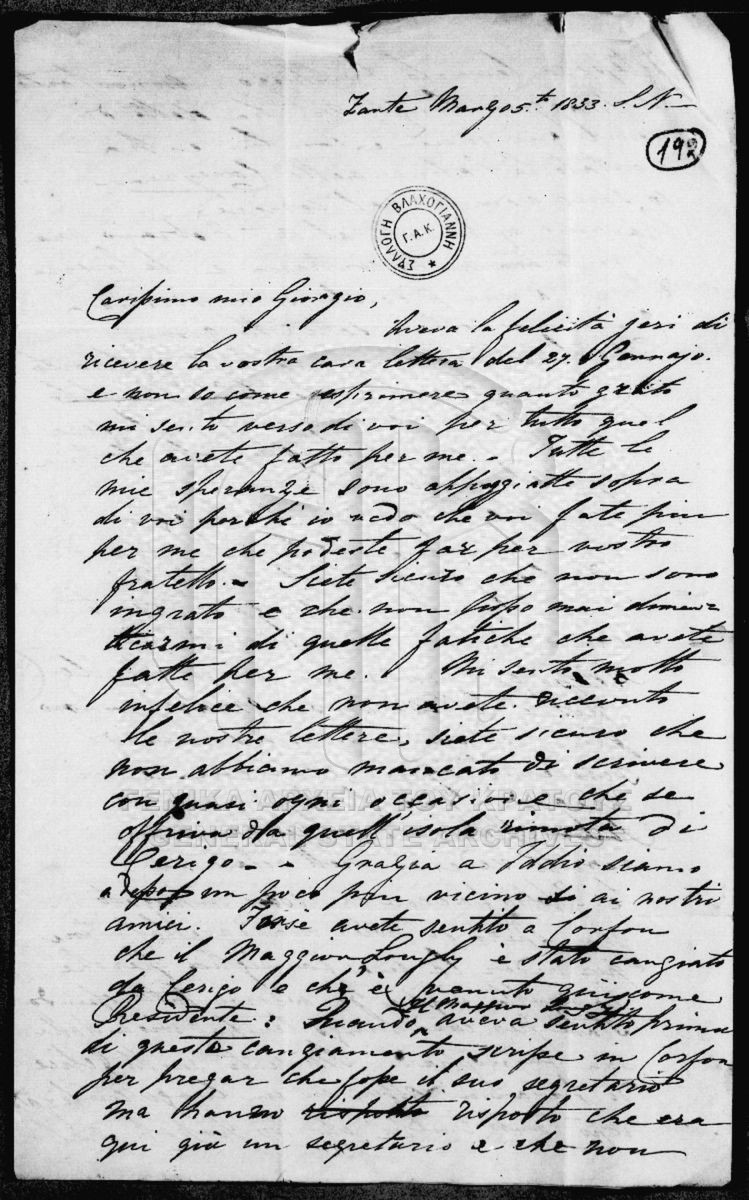 Zante Marzo 5.te 1833. S. N.
192
ΣΥΛΛΟΓΗ ΒΛΑΧΟΓΙΑΝΝΗ
Γ.Α.Κ.
Carissimo mio Giorgio,
Aveva la felicità jeri di
ricevere la vostra cara lettera del 27. Gennajo.
e non so come esprimere quanto grato
mi sento verso di voi per tutto quel
che avete fatto per me. - Tutte le
mie speranze sono appoggiatte sopra
di voi perchè io vedo che voi fate piu
per me che podeste far per vostro
fratello. - Siete sicuro che non sono
ingrato e che non posso mai dimen-
ticarmi di quelle fatiche che avete
fatte per me. Mi sento molto
infelice che non avete ricevuto
le nostre lettere, siete sicuro che
non abbiamo mancato di scrivere
con quasi ogni occasione che se
offriva da quell'isola rimota di
Cerigo - - Grazia a Iddio siamo
adesso un poco piu vicino ai nostri
amici. Forse avete sentito a Corfou
che il Maggior Longly è stato cangiato
da Cerigo e che è venuto qui come
Residente: Quando il Maggior aveva sentito prima
di questo cangiamento scrisse in Corfou
per pregar che fosse il suo segretario
ma hanno risposto che era
qui già un segretario e che non
ΓΕΝΙΚΑ ΑΡΧΕΙΑ ΤΟΥ ΚΡΑΤΟΥΣ
GENERAL STATE ARCHIVES